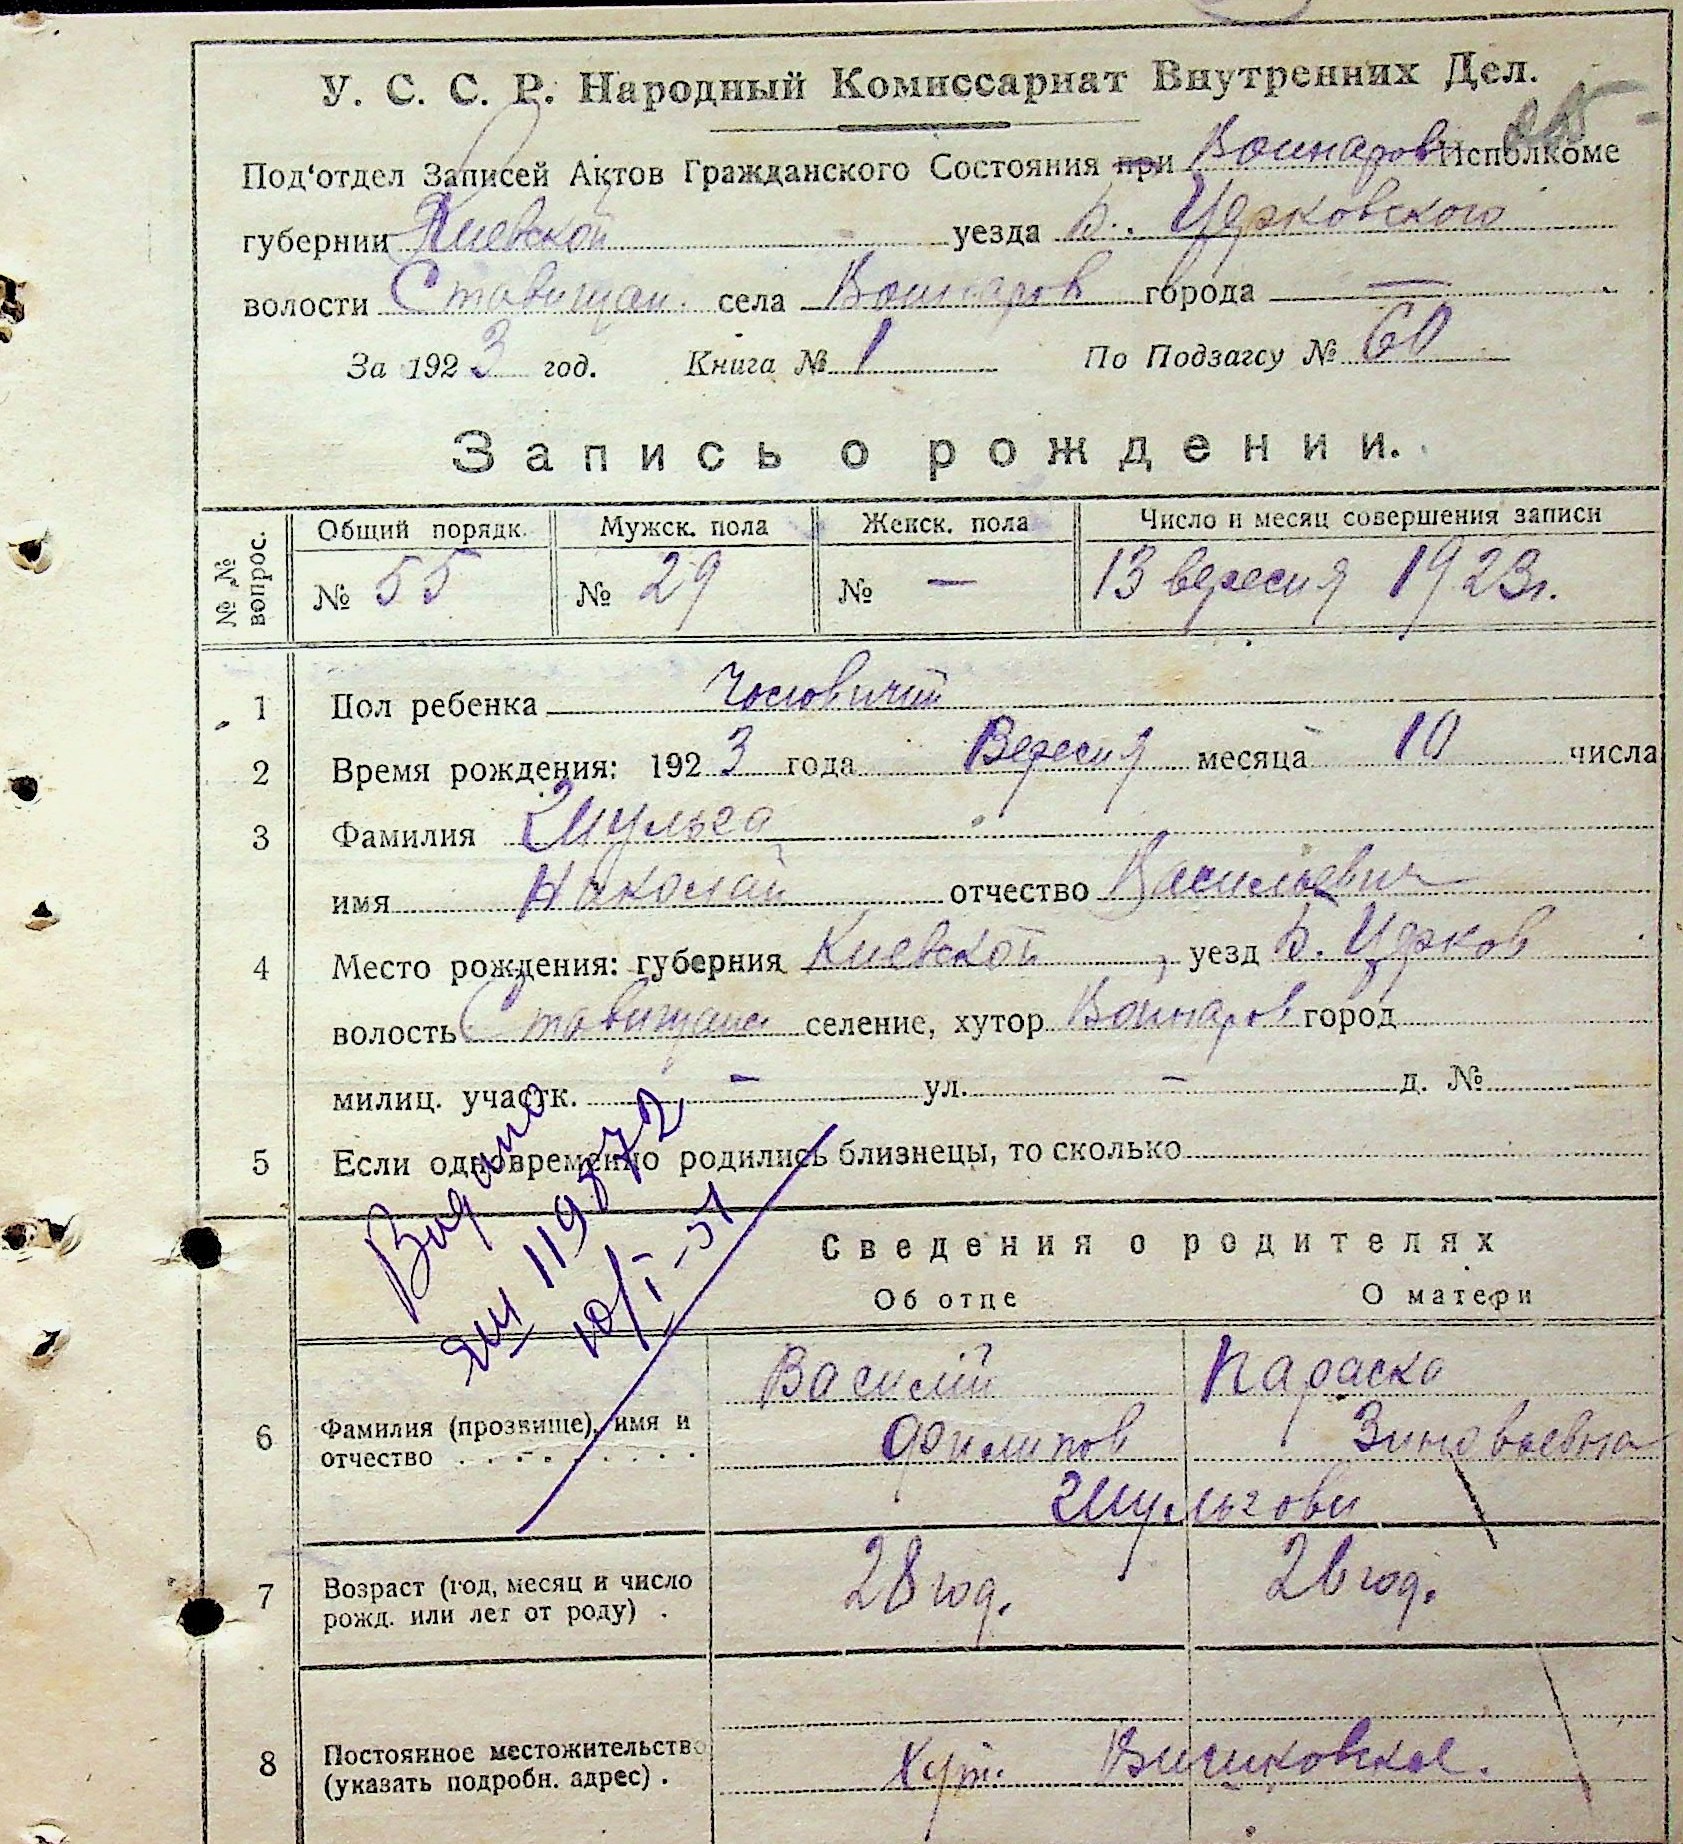 У. С. С. Р. Народный Комиссариат Внутренних Дел.
Под'отдел Записей Актов Гражданского Состояния при Войнаров Исполкоме
губернии Киевской уезда Б. Церковского
волости Ставищан. села Войнаров города —
За 1923 год. Книга № 1 По Подзагсу № 60
Запись о рождении.
№ № вопрос. Общий порядк. Мужск. пола Женск. пола Число и месяц совершения записи
№ 55 № 29 № — 13 вересня 1923 г.
1 Пол ребенка Чоловичий
2 Время рождения: 1923 года Вересня месяца 10 числа
3 Фамилия Шульга
имя Николай отчество Васильевич
4 Место рождения: губерния Киевской уезд Б. Церков
волость Ставищанс селение, хутор Войнаров город
милиц. участк. — ул. — д. №
5 Если одновременно родились близнецы, то сколько
Видано
119872
10/I-51
Сведения о родителях
Об отце О матери
6 Фамилия (прозвище), имя и отчество Василий Филипов Параска Зиновьевна
Шульгови
7 Возраст (год, месяц и число рожд. или лет от роду) . 28 год. 26 год.
8 Постоянное местожительство (указать подробн. адрес) . Хут.